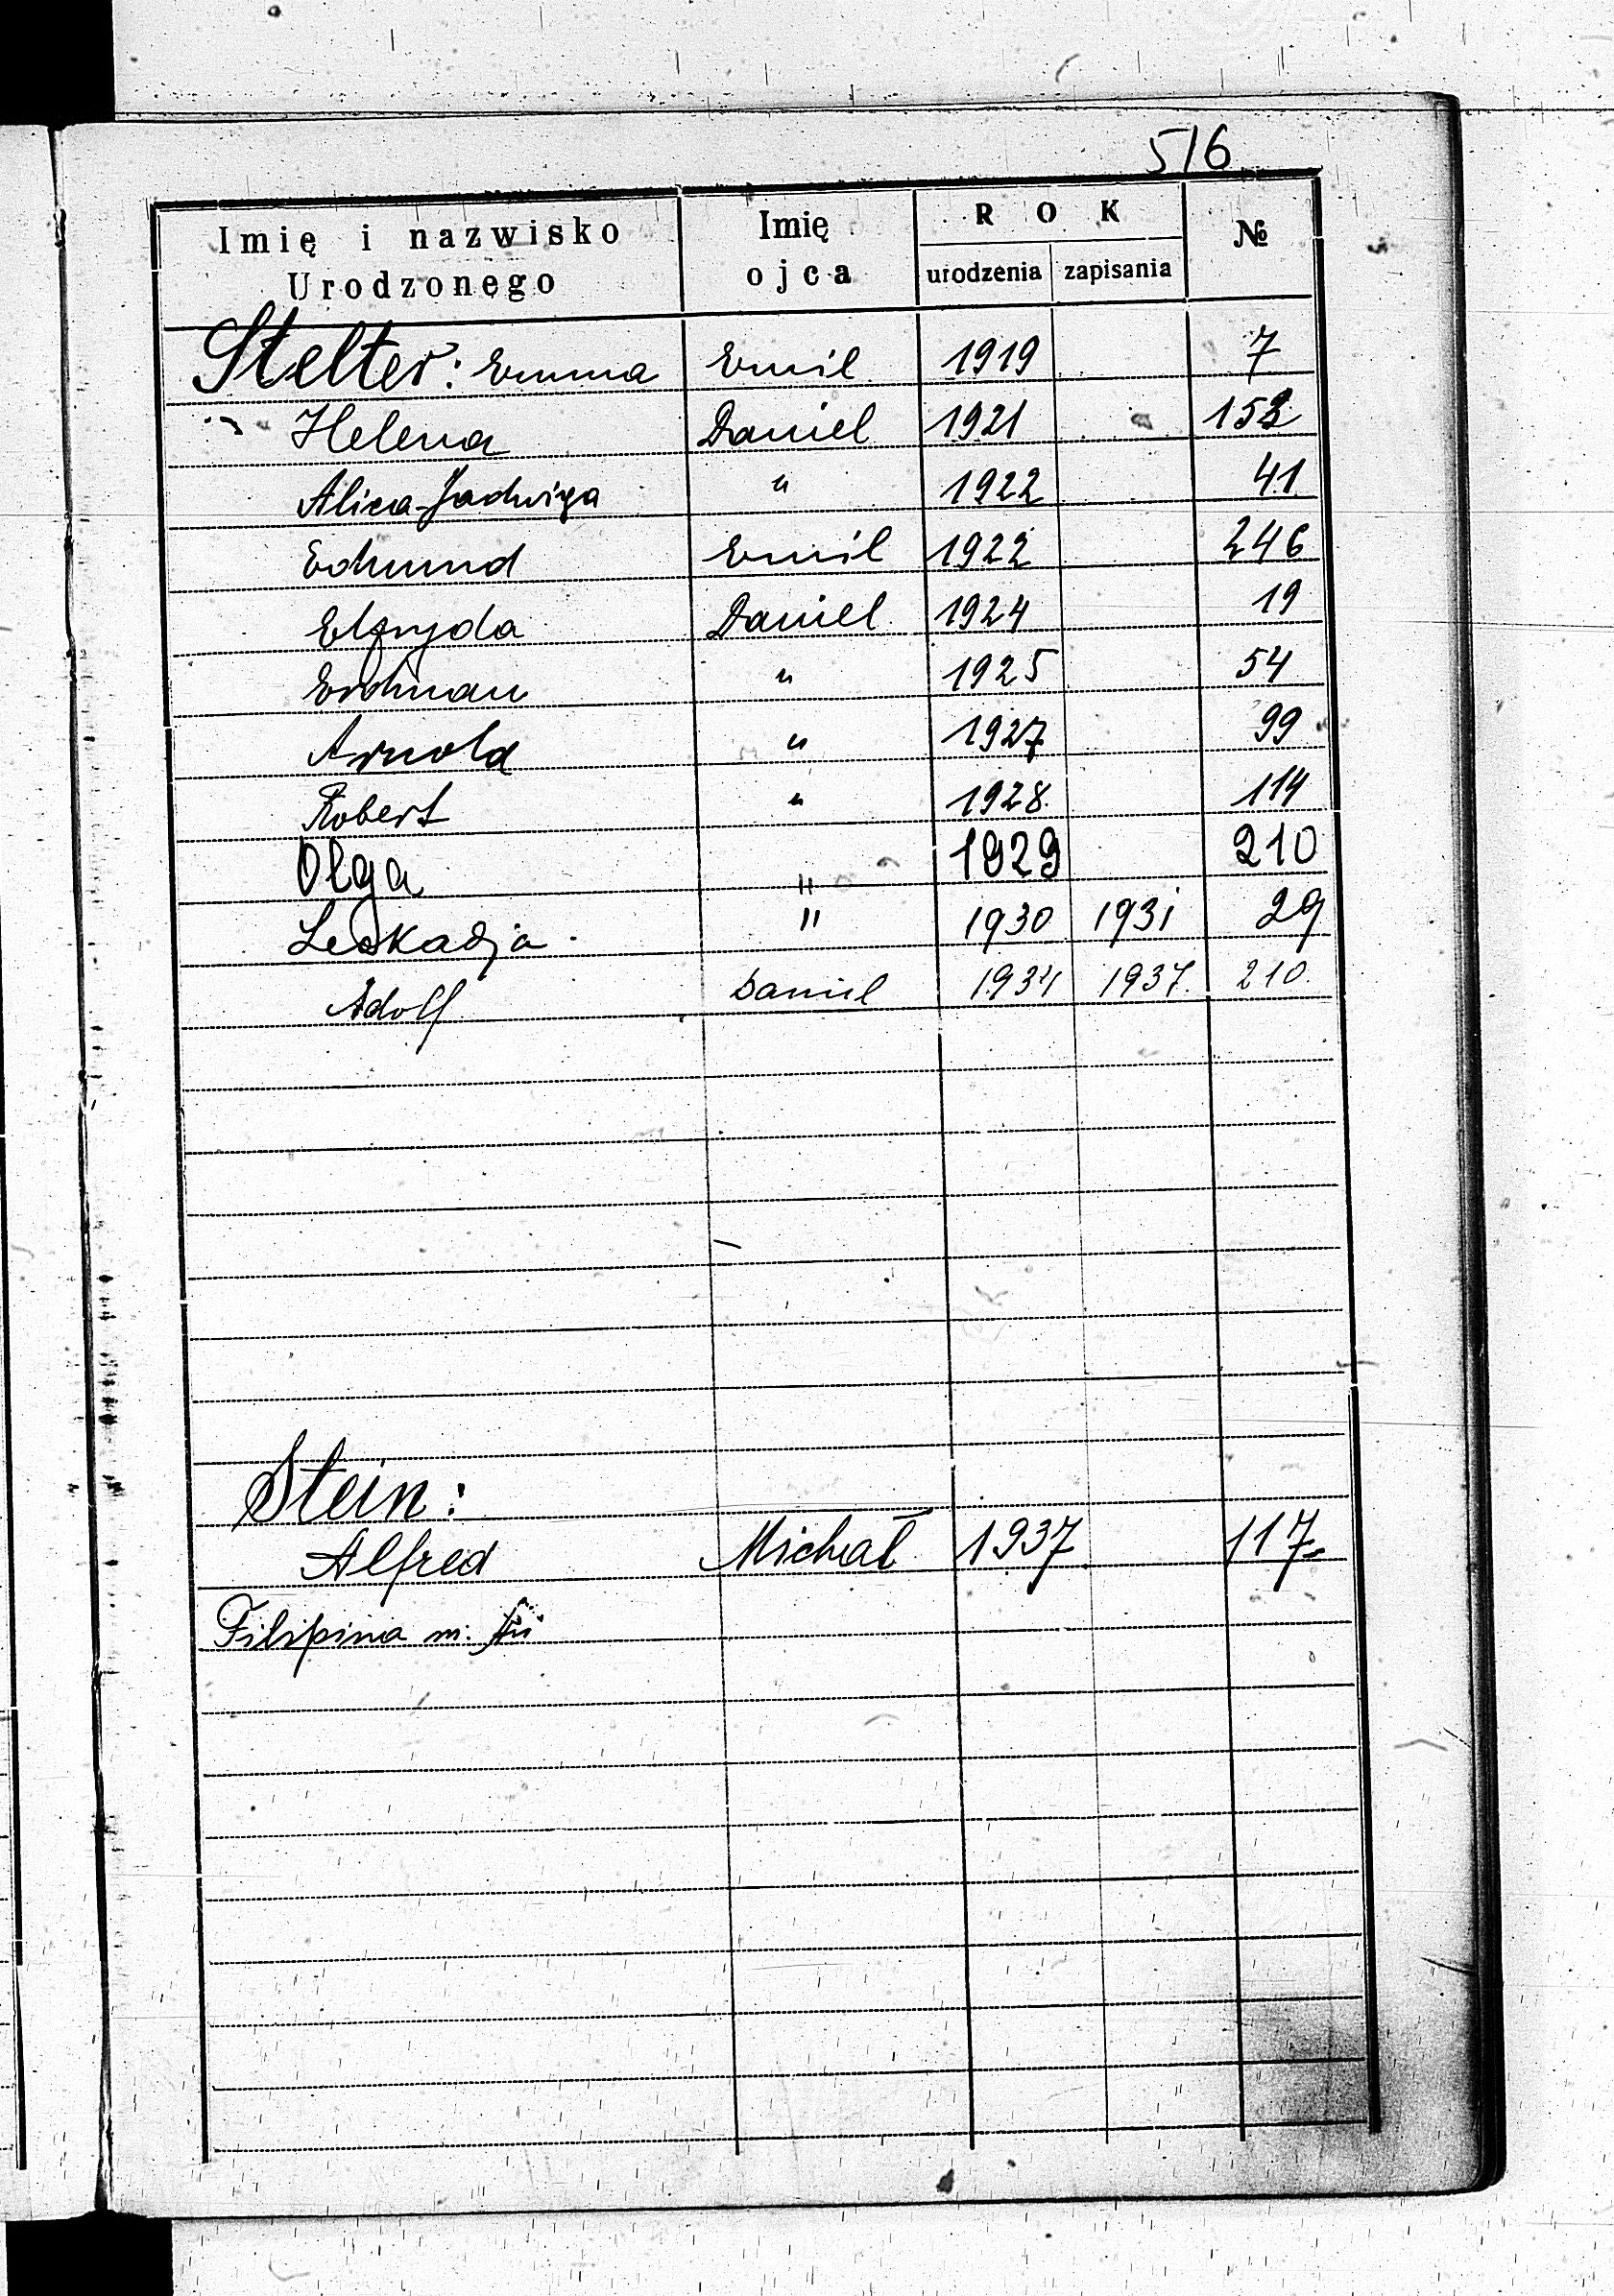 516
Imię i nazwisko Urodzonego Imię ojca ROK urodzenia zapisania №
Stelter: Emma Emil 1919 7
Helena Daniel 1921 153
Alicea-Jadwiga " 1922 41
Edmund Emil 1922 246
Elfryda Daniel 1924 19
Erdman " 1925 54
Arnold " 1927 99
Robert " 1928. 114
Olga " 1929 210
Leokadja " 1930 1931 29
Adolf Daniel 1934 1937. 210.
Stein:
Alfred Michał 1937 117
Filipina m.